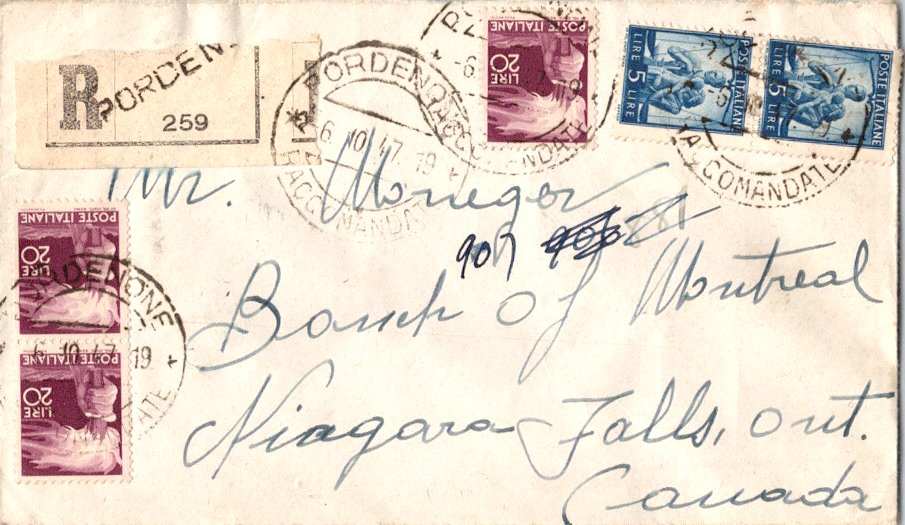 R PORDENONE
259
PORDENONE
6 10 47 19
RACCOMANDATE
POSTE ITALIANE
LIRE 20
POSTE ITALIANE
LIRE 5 LIRE
POSTE ITALIANE
LIRE 5 LIRE
RACCOMANDATE
Mr. Moneger
907
Bank of Montreal
Niagara Falls, Ont.
Canada
POSTE ITALIANE
LIRE 20
PORDENONE
6 10 47 19
POSTE ITALIANE
LIRE 20